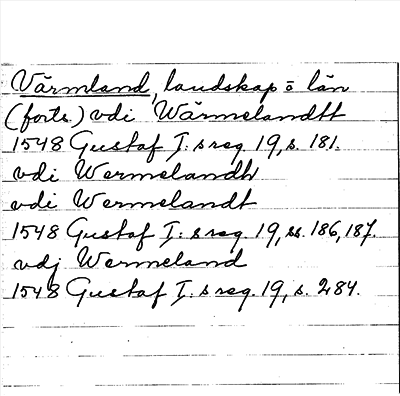 Värmland, landskap o län
(forts.) vdi Wärmelandtt
1548 Gustaf I:s reg. 19, s. 181.
vdi Wermelandh
vdi Wermelandt
1548 Gustaf I:s reg. 19, ss. 186, 187.
vdj Wermeland
1548 Gustaf I:s reg. 19, s. 284.